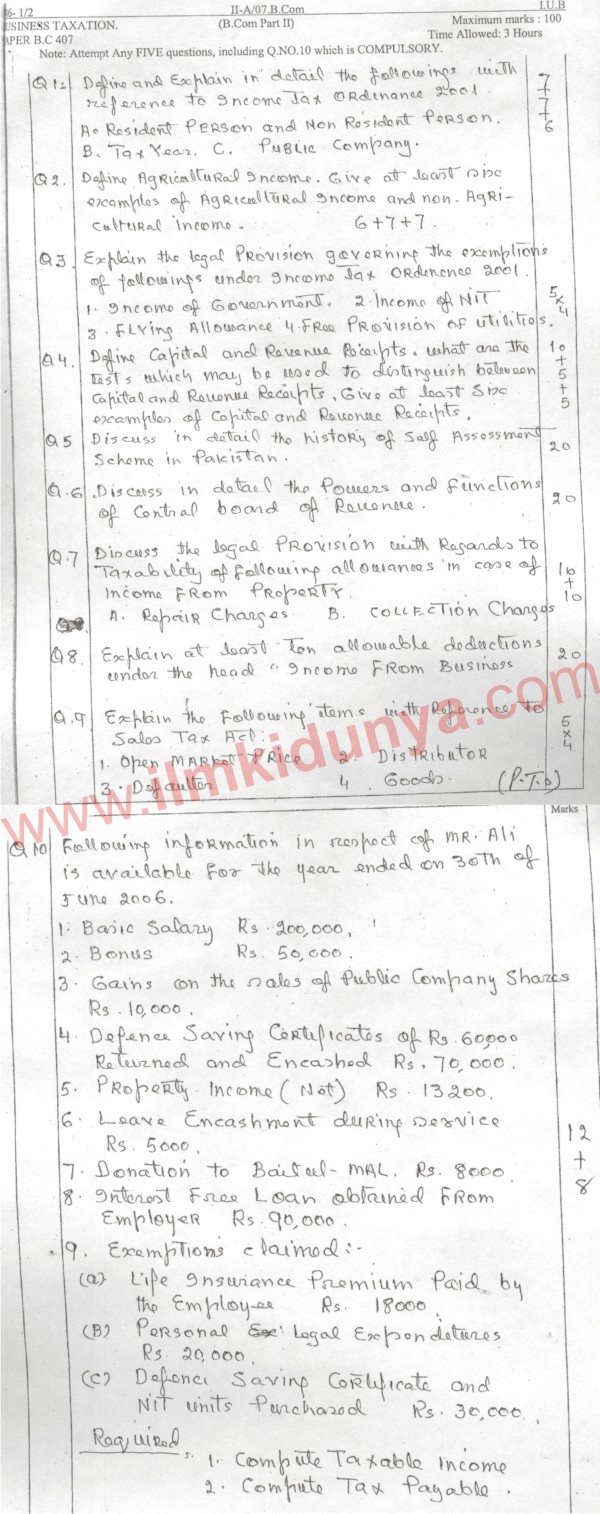 6- 1/2 II-A/07.B.Com I.U.B
USINESS TAXATION. (B.Com Part II) Maximum marks : 100
APER B.C 407 Time Allowed: 3 Hours
Note: Attempt Any FIVE questions, including Q.NO.10 which is COMPULSORY.
Q1: Define and Explain in detail the followings with 7
reference to Income Tax ORdinance 2001. +7
A. Resident PERSON and Non Resident Person. +6
B. Tax Year. C. PUBLIC Company.
Q2. Define AgRicultural Income. Give at least six
examples of AgRicultural Income and non-AgRi-
cultural income. 6+7+7.
Q3. Explain the legal PROVISION governing the exemptions
of followings under Income Tax ORdenence 2001.
1. Income of Government. 2. Income of NIT 5
3. FLYing Allowance 4. FREE PROVISION of utilities. ×4
Q4. Define Capital and Revenue Receipts. What are the 10
tests which may be used to distinguish between +5
Capital and Revenue Receipts, Give at least Six +5
examples of Capital and Revenue Receipts.
Q5 Discuss in detail the history of Self Assessment
Scheme in Pakistan. 20
Q.6 Discuss in detail the Powers and Functions
of Central board of Revenue. 20
Q.7 Discuss the legal PROVISION with Regards to
Taxability of following allowances in case of 10
Income FROM PROPERTY. +
A. Repair Charges B. COLLECTION Charges 10
Q8. Explain at least Ten allowable deductions
under the head "Income FROM Business 20
Q.9 Explain the Following items with Reference to
Sales Tax Act: 5
1. Open MARKET Price 2. Distributor ×4
3. Defaulter 4. Goods. (P.T.O)
www.ilmkidunya.com
Marks
Q10 Following information in respect of MR. Ali
is available for the year ended on 30th of
June 2006.
1. Basic Salary Rs. 200,000.
2. Bonus Rs. 50,000.
3. Gains on the sales of Public Company Shares
Rs. 10,000.
4. Defence Saving Certificates of Rs. 60,000
Returned and Encashed Rs. 70,000.
5. PRoperty Income (Net) Rs. 13200.
6. Leave Encashment during service
Rs. 5000. 12
7. Donation to Baitul-MAL. Rs. 8000. +
8. Interest Free Loan obtained FROM 8
Employer Rs. 90,000.
9. Exemptions claimed:-
(a) Life Insuriance Premium Paid by
the Employee Rs. 18000.
(B) Personal Legal Expenditures
Rs. 20,000.
(C) Defence Saving Certificate and
NIT units Purchased Rs. 30,000.
Required
1. Compute Taxable Income
2. Compute Tax Payable.